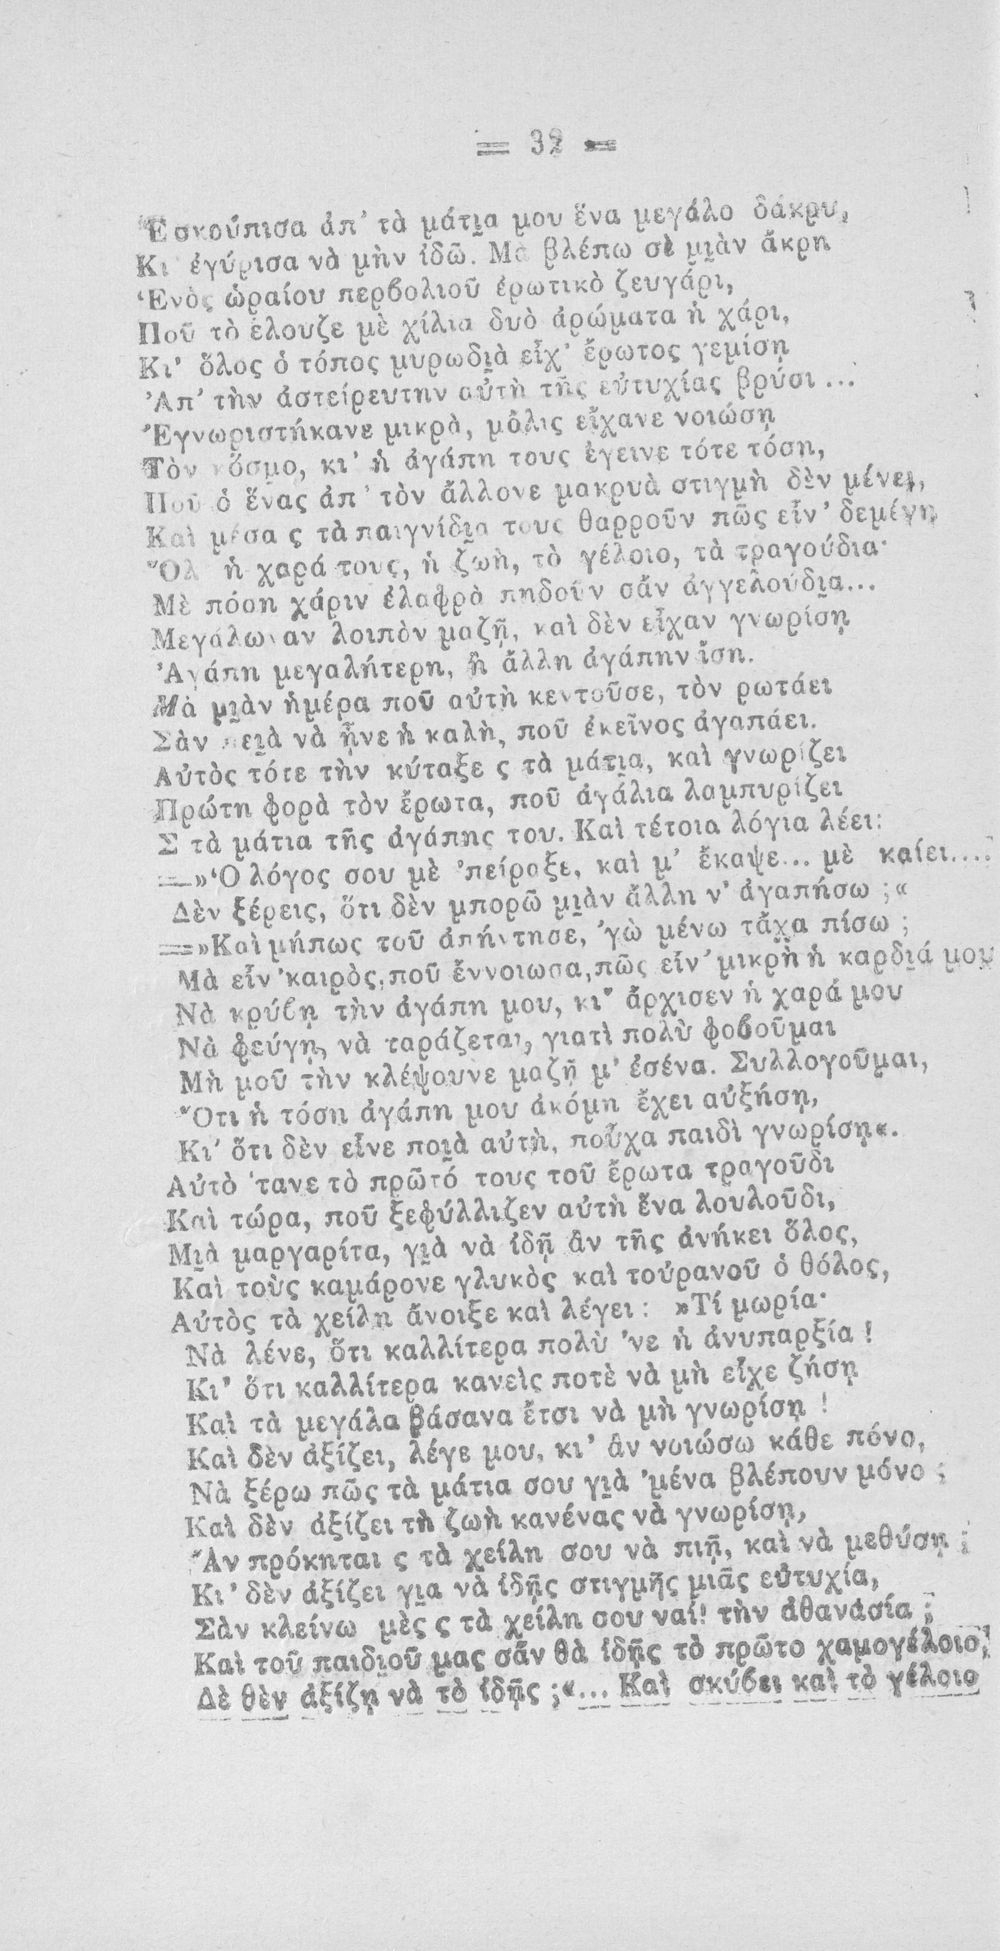 = 32 =
Ἐσκούπισα ἀπ' τὰ μάτι̯α μου ἕνα μεγάλο δάκρυ,
Κι' ἐγύρισα νὰ μὴν ἰδῶ. Μὰ βλέπω σὲ μι̯ὰν ἄκρη
Ἑνὸς ὡραίου περβολιοῦ ἐρωτικὸ ζευγάρι,
Ποῦ τὸ ἔλουζε μὲ χίλια δυὸ ἀρώματα ἡ χάρι,
Κι' ὅλος ὁ τόπος μυρωδι̯ὰ εἶχ' ἔρωτος γεμίσῃ
Ἀπ' τὴν ἀστείρευτην αὐτὴ τῆς εὐτυχίας βρύσι...
Ἐγνωριστήκανε μικρὰ, μόλις εἴχανε νοιώσῃ
Τὸν κόσμο, κι' ἡ ἀγάπη τους ἔγεινε τότε τόση,
Ποῦ ὁ ἕνας ἀπ' τὸν ἄλλονε μακρυὰ στιγμὴ δὲν μένει,
Καὶ μέσα ς τὰ παιγνίδι̯α τους θαρροῦν πῶς εἶν' δεμένῃ
Ὅλ' ἡ χαρά τους, ἡ ζωὴ, τὸ γέλοιο, τὰ τραγούδια·
Μὲ πόση χάριν ἐλαφρὰ πηδοῦν σἂν ἀγγελούδι̯α...
Μεγάλωσαν λοιπὸν μαζῆ, καὶ δὲν εἶχαν γνωρίσῃ
Ἀγάπη μεγαλήτερη, ἢ ἄλλη ἀγάπην ἴση.
Μὰ μι̯ὰν ἡμέρα ποῦ αὐτὴ κεντοῦσε, τὸν ρωτάει
Σὰν ποι̯ὰ νὰ ἦνε ἡ καλὴ, ποῦ ἐκεῖνος ἀγαπάει.
Αὐτὸς τότε τὴν κύταξε ς τὰ μάτι̯α, καὶ γνωρίζει
Πρώτη φορὰ τὸν ἔρωτα, ποῦ ἀγάλια λαμπυρίζει
Σ τὰ μάτια τῆς ἀγάπης του. Καὶ τέτοια λόγια λέει:
=»Ὁ λόγος σου μὲ 'πείραξε, καὶ μ' ἔκαψε... μὲ καίει....
Δὲν ξέρεις, ὅτι δὲν μπορῶ μι̯ὰν ἄλλη ν' ἀγαπήσω ;«
=»Καὶ μήπως τοῦ ἀπήντησε, 'γὼ μένω τἄχα πίσω ;
Μὰ εἶν' καιρὸς, ποῦ ἔννοιωσα, πῶς εἶν' μικρὴ ἡ καρδι̯ά μου
Νὰ κρύβῃ τὴν ἀγάπη μου, κι' ἄρχισεν ἡ χαρά μου
Νὰ φεύγῃ, νὰ ταράζεται, γιατὶ πολὺ φοβοῦμαι
Μὴ μοῦ τὴν κλέψουνε μαζῆ μ' ἐσένα. Συλλογοῦμαι,
Ὅτι ἡ τόση ἀγάπη μου ἀκόμη ἔχει αὐξήσῃ,
Κι' ὅτι δὲν εἶνε ποι̯ὰ αὐτὴ, ποὖχα παιδὶ γνωρίσῃ«.
Αὐτὸ 'τανε τὸ πρῶτό τους τοῦ ἔρωτα τραγοῦδι
Καὶ τώρα, ποῦ ξεφύλλιζεν αὐτὴ ἕνα λουλοῦδι,
Μι̯ὰ μαργαρίτα, γι̯ὰ νὰ ἰδῆ ἂν τῆς ἀνήκει ὅλος,
Καὶ τοὺς καμάρονε γλυκὸς καὶ τοὐρανοῦ ὁ θόλος,
Αὐτὸς τὰ χείλη ἄνοιξε καὶ λέγει: »Τί μωρία·
Νὰ λένε, ὅτι καλλίτερα πολὺ 'νε ἡ ἀνυπαρξία !
Κι' ὅτι καλλίτερα κανεὶς ποτὲ νὰ μὴ εἶχε ζήσῃ
Καὶ τὰ μεγάλα βάσανα ἔτσι νὰ μὴ γνωρίσῃ !
Καὶ δὲν ἀξίζει, λέγε μου, κι' ἂν νοιώσω κάθε πόνο,
Νὰ ξέρω πῶς τὰ μάτια σου γι̯ὰ 'μένα βλέπουν μόνο ;
Καὶ δὲν ἀξίζει τὴ ζωὴ κανένας νὰ γνωρίσῃ,
Ἂν πρόκηται ς τὰ χείλη σου νὰ πιῇ, καὶ νὰ μεθύσῃ ;
Κι' δὲν ἀξίζει γι̯α νὰ ἰδῇς στιγμῆς μιᾶς εὐτυχία,
Σὰν κλείνω μὲς ς τὰ χείλη σου ναί! τὴν ἀθανασία ;
Καὶ τοῦ παιδι̯οῦ μας σἂν θὰ ἰδῇς τὸ πρῶτο χαμογέλοιο,
Δὲ θὲν ἀξίζῃ νὰ τὸ ἰδῇς ;«... Καὶ σκύβει καὶ τὸ γέλοιο